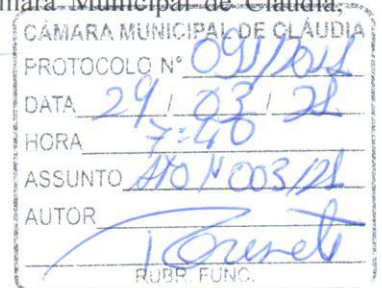 mara Municipal de Cláudia,
CÂMARA MUNICIPAL DE CLÁUDIA
PROTOCOLO Nº 091/2021
DATA 29 / 03 / 21
HORA 7:40
ASSUNTO ATO Nº 003/21
AUTOR
RUBR. FUNC.